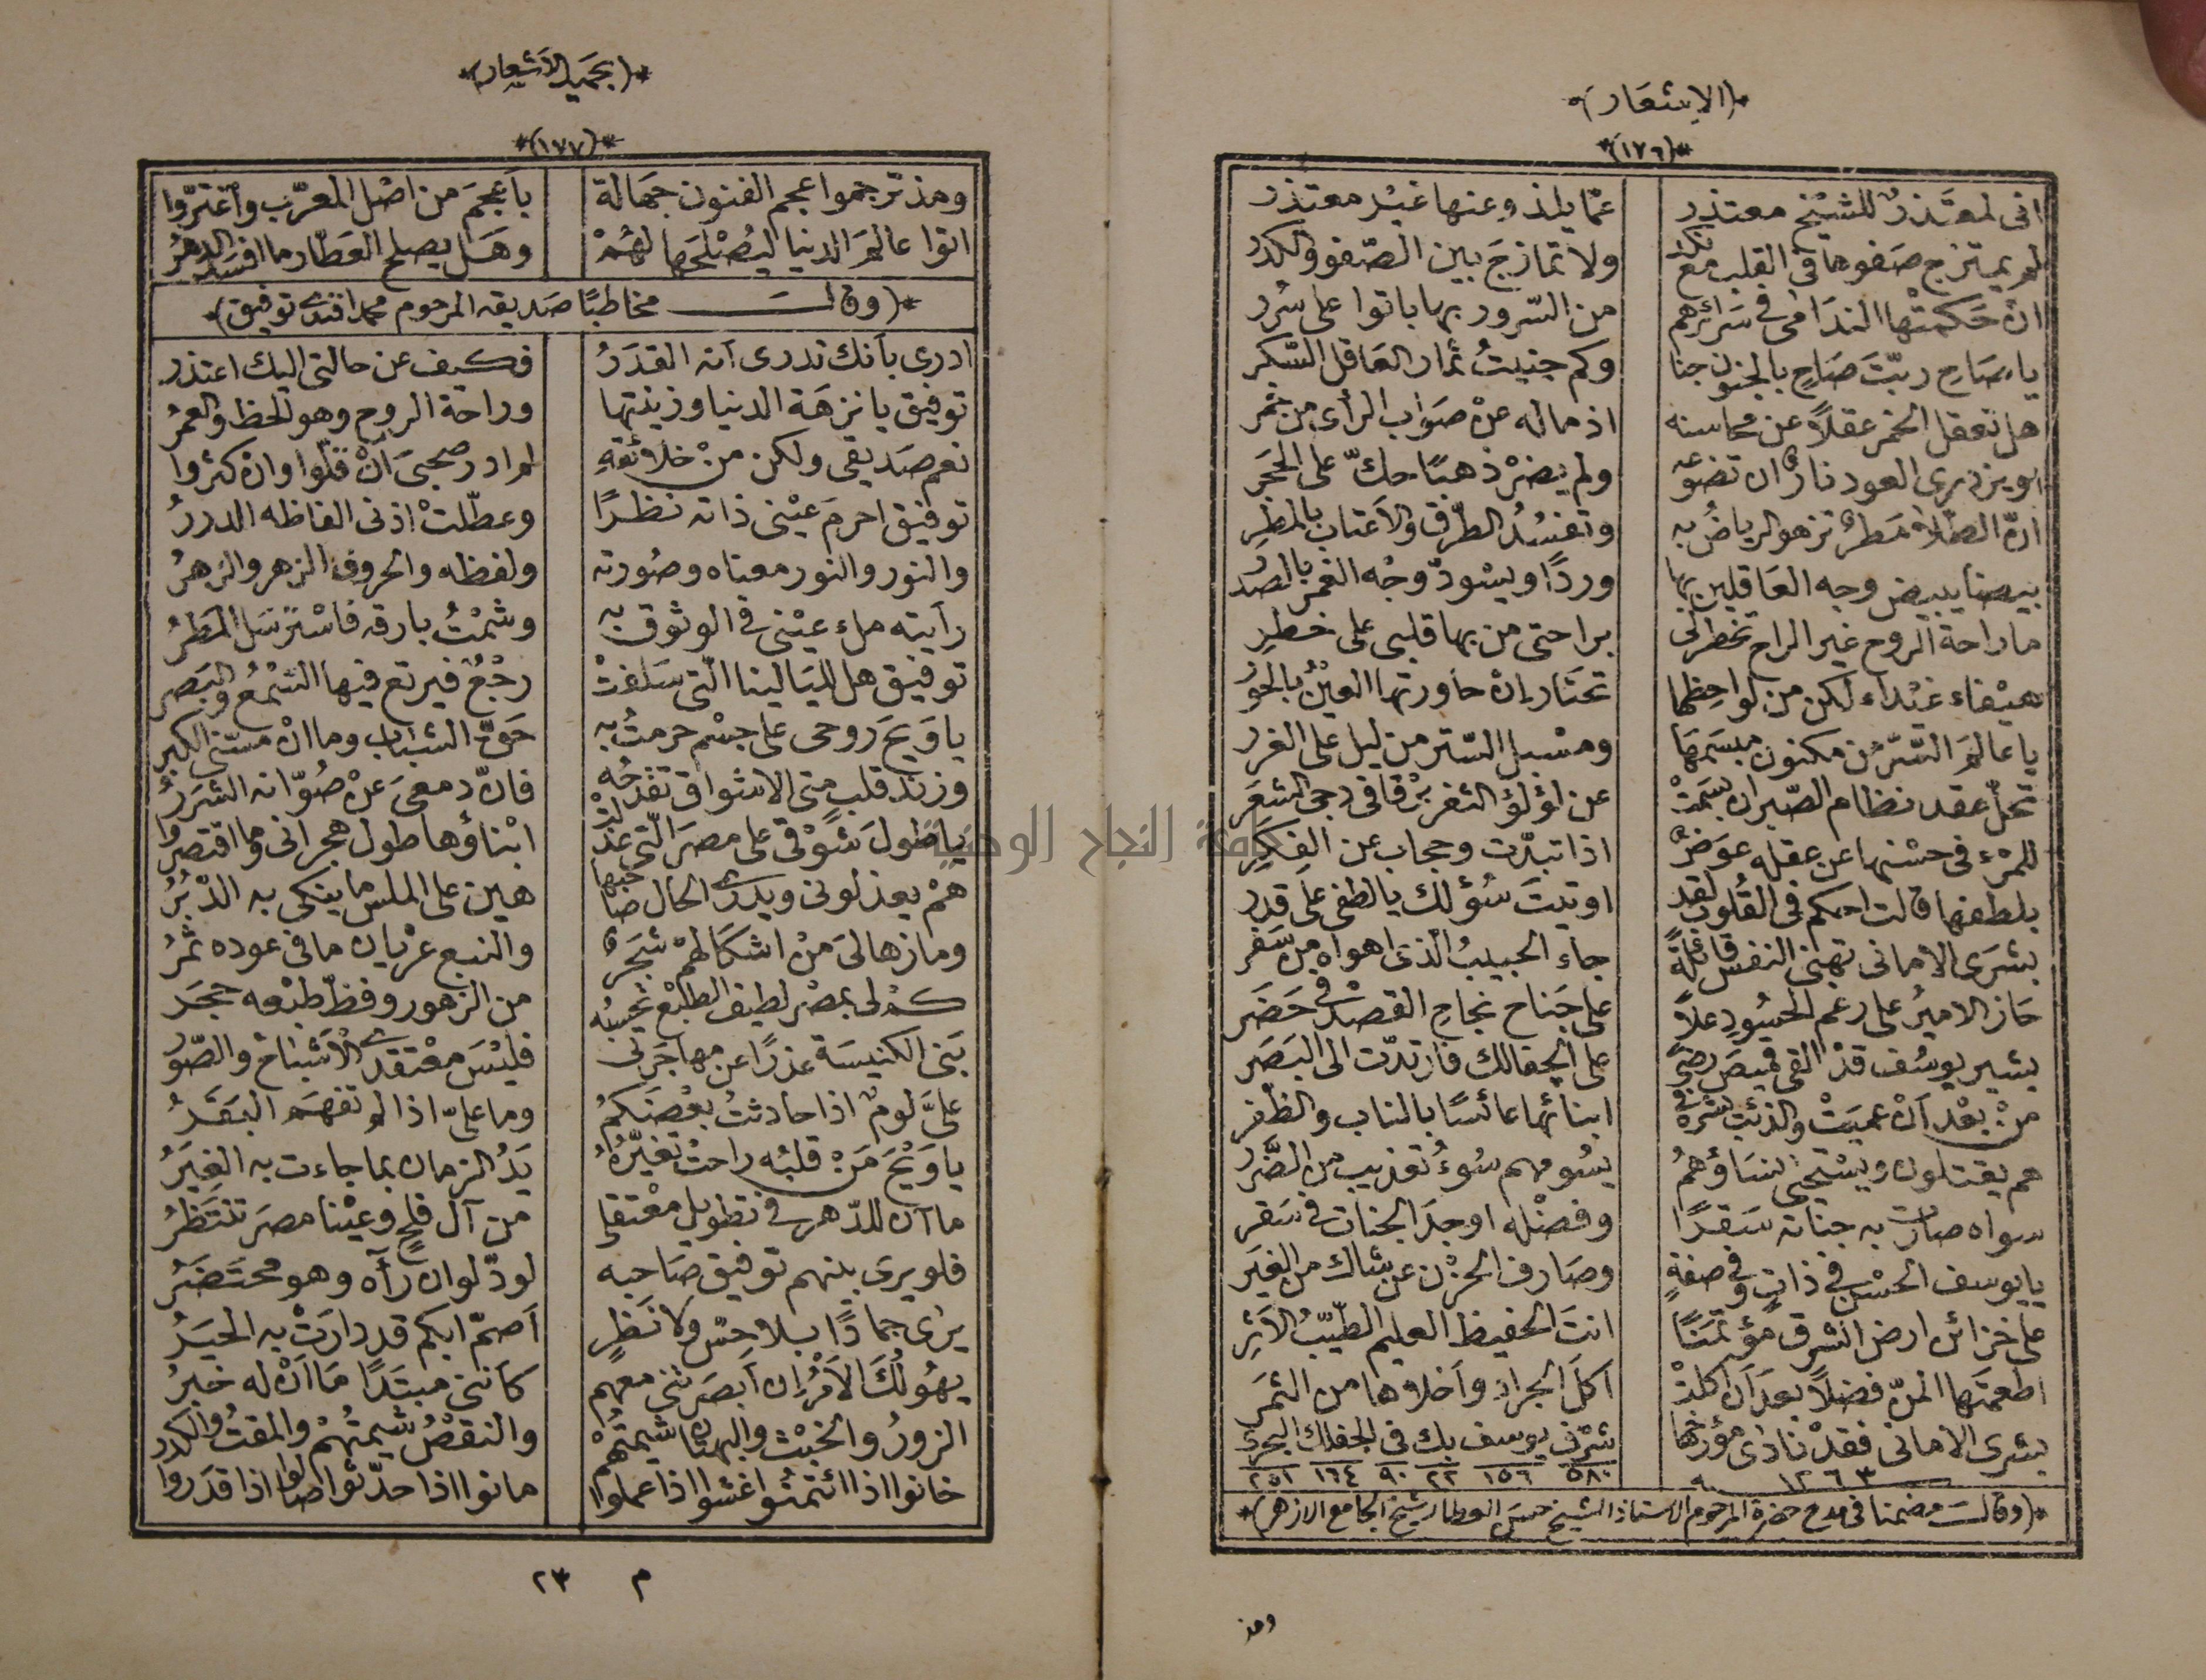 *(الاشعار)*
*(١٧٦)*
انى لمعتذرٌ للشيخ معتذرٍ عمّا يلذ وعنها غيْر معتذر
لم يمتزج صَفوها فى القلب مع نكد ولا تمازجَ بين الصّفو والكدر
انْ حَكمتْها الندَامى فى سَرائرهم من السّرور بها باتوا على سُرر
يا صَاحِ ربّتَ صَاحٍ بالجنون جنا وكم جنيتُ ثمار العَاقل السّكر
هل تعقل الخمر عقلاً عن محاسنه اذ ماله عنْ صوَاب الرأى من ثمر
او يزدرى العود نارٌ ان تضوعه ولم يضرْ ذهبًا حكّ على الحَجَر
انّ الطلا مَطرٌ تزهو الرياضُ به وتفسُدُ الطّرق والاَعتاب بالمطرِ
بيضا يبيض وجه العَاقلين بها وردًا ويسْودّ وجْه الغمر بالصدر
ما راحة الروح غير الراح تخطر لى براحتى من بها قلبى على خطرِ
هيْفاء غيْداء لكن من لواحِظها تحتار إنْ حاورتها العينُ بالحوَر
يا عالمَ السّرّ من مكنون مبسَمهَا ومسْبل السّتر من ليل على الغرر
تحلّ عقد نظام الصّبر ان بسَمتْ عن لؤلؤ الثغر برْقا فى دجى الشعَر
للمرْء فى حسْنها عن عقله عوَضٌ اذا تبدّت وحجاب عن الفِكَرِ
بلطفها قالت احكم فى القُلوب لقد اوتيتَ سُؤلك يا لطفى علَى قدر
بشرَى الاَمانى تهنى النفس قائلةً جاء الحبيبُ الذى اهواه من سَفر
حَاز الاميرُ على رغم الحسُودِ علاً على جَناح نجاحِ القصْد فى حَضَر
بشير يوسُف قدْ القى قميصَ رضىً على الجفالك فارتدّت الى البَصَر
منْ بعْد اَنْ عميَتْ والذئب شره فى ابنائها عائسًا بالناب والظفر
هم يقتلون ويسْتحى نسَاؤهمُ يسُومهم سُوءُ تعذيب من الضَّرر
سواه صارت به جناته سَقرًا وفضْله اوجدَ الجنات فى سَقر
يا يوسف الحسْن فى ذاتٍ وفى صفةٍ وصَارف الحزْن عن شاك من الغِيَر
على خزائن ارض الشرق مؤتمَنًا انتَ الحفيظ العليم الطيّبُ الاَثَرِ
اطعمتَها المنّ فضلاً بعدَ اَن اكلتْ اكلَ الجرادِ واَخلاوها من الثمَر
بشرى الامانى فقدْ نادَى مؤرخها شرّف يوسف بك فى الجفلك البحرى
١٢٦٣ ٥٨٠ ١٥٦ ٢٢ ٩٠ ١٦٤ ٢٥١
*(وقالـــت مضمنا فى مدح حضرة المرحوم الاستاذ الشيخ حسن العطار شيخ الجامع الازهر)*
ومذ
*(بحميد الاَشعار)*
*(١٧٧)*
ومذ ترجموا عجم الفنون جهالة باَعجمَ من اصْل المعَرّب واَغترّوا
اتوا عالمَ الدنيا ليُصْلحَها لهُمْ وهَل يصلح العَطّار ما افسَد الدهرُ
*(وقالـــت مخاطبًا صَديقه المرحوم محمد افندى توفيق)*
ادرى باَنك تدرى اَنه القدَرُ فكيف عن حالتى اليك اعتذر
توفيق يا نزهَة الدنيا وزينتها وراحة الروح وهو الحظ والعمُر
نعم صَديقى ولكن منْ خلائقهِ لم ادر صحبىَ اَنْ قلّوا وان كثروا
توفيق احرمَ عيْنى ذاته نظرًا وعطّلتْ اذنى الفاظه الدررُ
والنور والنور معناه وصُورته ولفظه والحروف الزهر والزهرُ
راَيته ملء عيْنى فى الوثوق به وشمْتُ بارقه فاسْترسَل المَطرُ
توفيق هل لليَالينا الّتى سَلفتْ رجْعٌ فيرتع فيها السّمْعُ والبَصَر
يا وَيحَ روحى على جسْم حرمتُ به حَقّ الشباب وما انْ مسّنى الكبر
وزند قلب متى الاشواق تقدحُه فانّ دمعىَ عنْ صُوّانه الشرَرُ
يا طولَ شوْقى على مصرَ الّتى عذلتْ ابْناؤها طول هجرانى وما اقتصروا
همْ يعذلونى ويدرى الحال صَاحبها هين على الملس ما ينكى به الدْبَرُ
وما زها لىَ منْ اشكَالهمْ شجَرٌ والنبع عرْيان ما فى عوده ثمرُ
كمْ لى بمصْر لطيف الطبْع تحسبُه من الزهور وفظّ طبْعه حجَر
بَنى الكنيسَة عذرًا عن مهاجَرتى فليْسَ معْتقدى الاَشباح والصّوَر
علىَّ لومٌ اذا حادثتُ بعْضَكمُ وما علىّ اذا لم تفهَم البَقَرُ
يا ويْحَ مَنْ قلبُه راحتْ تغيّرهُ يَدُ الزمان بما جاءت به الغِيَرُ
ما اَن للدّهر فى تطويل معْتقلى من آل فلحٍ وعيْنا مصرَ تنتَظرُ
فلو يرى بينهم توفيق صَاحبه لودّ لو ان راَه وهو محتَضَرُ
يرى جمادًا بلا حِسّ ولا نَظرٍ اَصمّ ابكم قد دارَتْ به الحيَرُ
يهُولُكَ الاَمْرُ ان اَبصَرتنى معهم كاَننى مبتدًا مَا اَنْ له خبَرُ
الزورُ والخبْث والبهتان شيمتُهمْ والنقصُ شيمَتُهُمْ والمقتُ والكدر
خانوا اذا ائتمنُوا غشوا اذا عملوا مانوا اذا حدّثوا صَالوا اذا قدَروا
م ٢٣
جامعة النجاح الوطنية